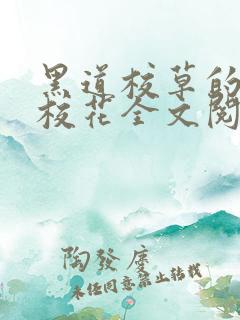 黑道校草的
校花全文阅
陶發廣
未经同意禁止转载